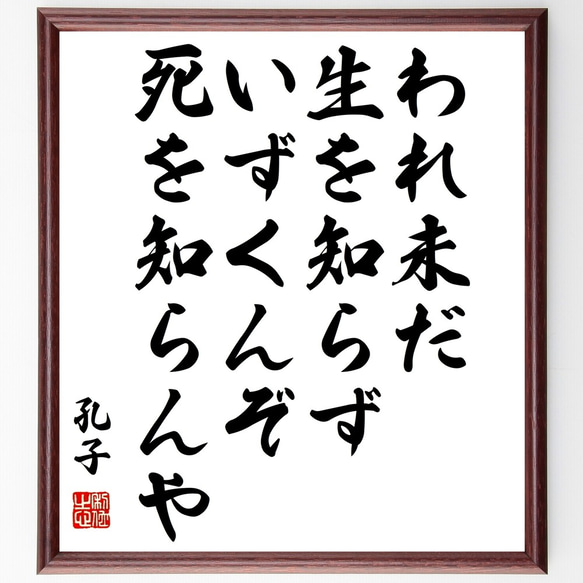 われ未だ
生を知らず
いずくんぞ
死を知らんや
孔子